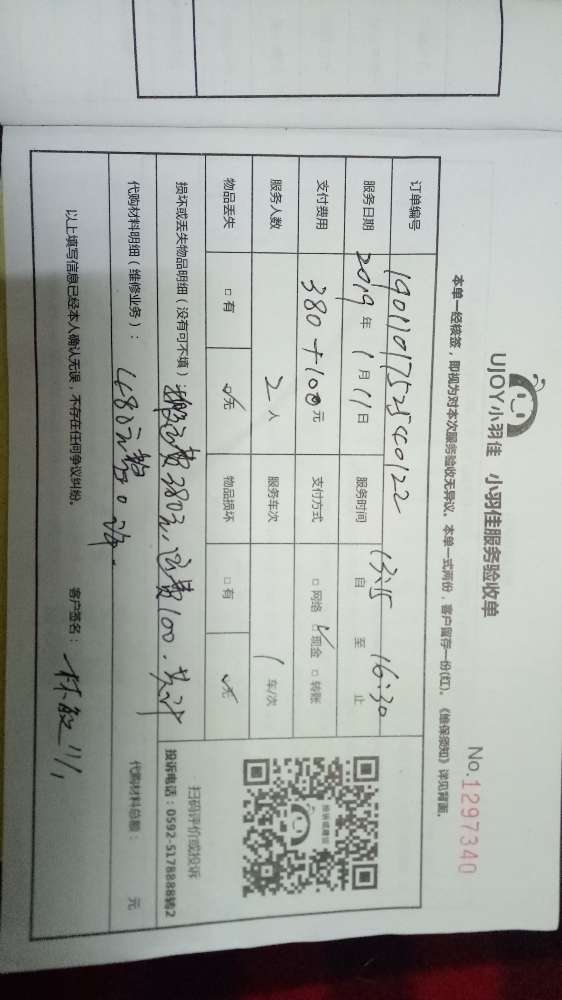 UJOY小羽佳 小羽佳服务验收单
No.1297340
本单一经核签,即视为对本次服务验收无异议。本单一式两份,客户留存一份(红)。《维保须知》详见背面。
订单编号 1901101752540122
服务日期 2019年1月11日 服务时间 13:15 自 至 16:30 止
支付费用 380+100元 支付方式 □网络 ☑现金 □转账
服务人数 2人 服务车次 1车/次
物品丢失 □有 ☑无 物品损坏 □有 ☑无
扫码评价或投诉
投诉电话:0592-5178888转2
损坏或丢失物品明细(没有可不填):搬运费380元,运费100.共计
代购材料明细(维修业务): 480元整 代购材料总额: 元
以上填写信息已经本人确认无误,不存在任何争议纠纷。 客户签名:林